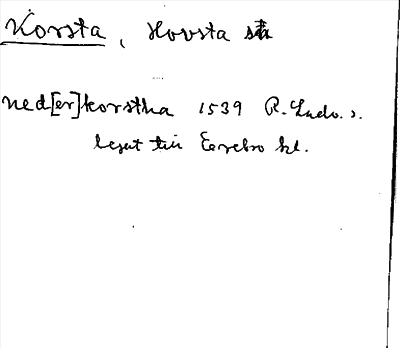 Korsta, Hovsta sn
ned[er]korstha 1539 R. Ludv. s.
beset till Eerebro kl.